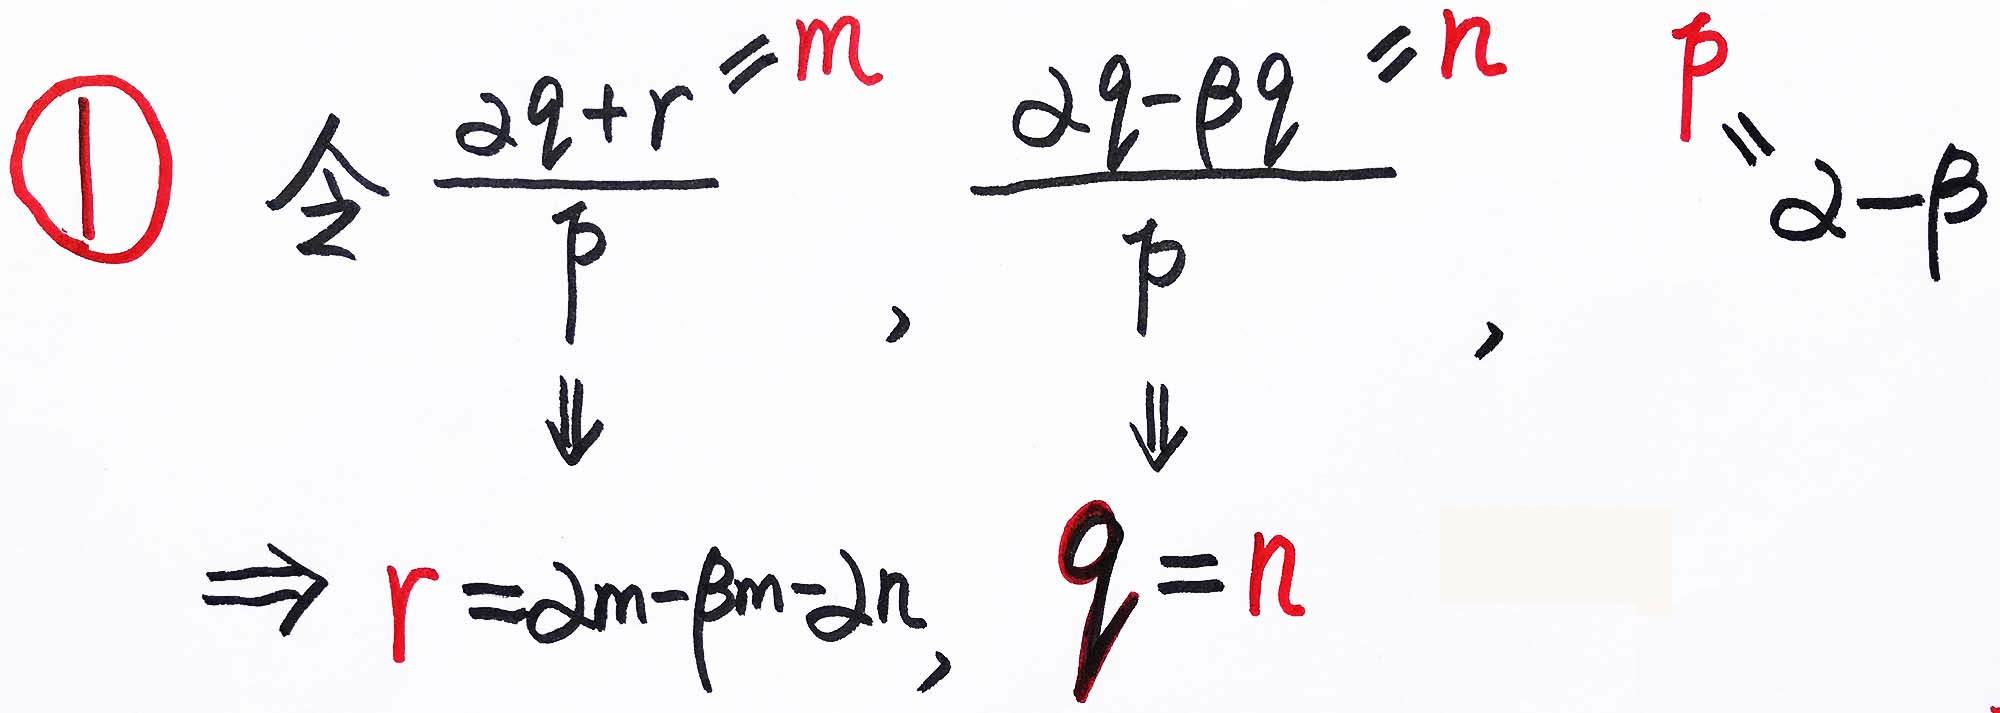 ① 令 (2q+r)/p = m , (2q-βq)/p = n , p = 2-β
⇓ ⇓
⇒ r = 2m-βm-2n, q = n